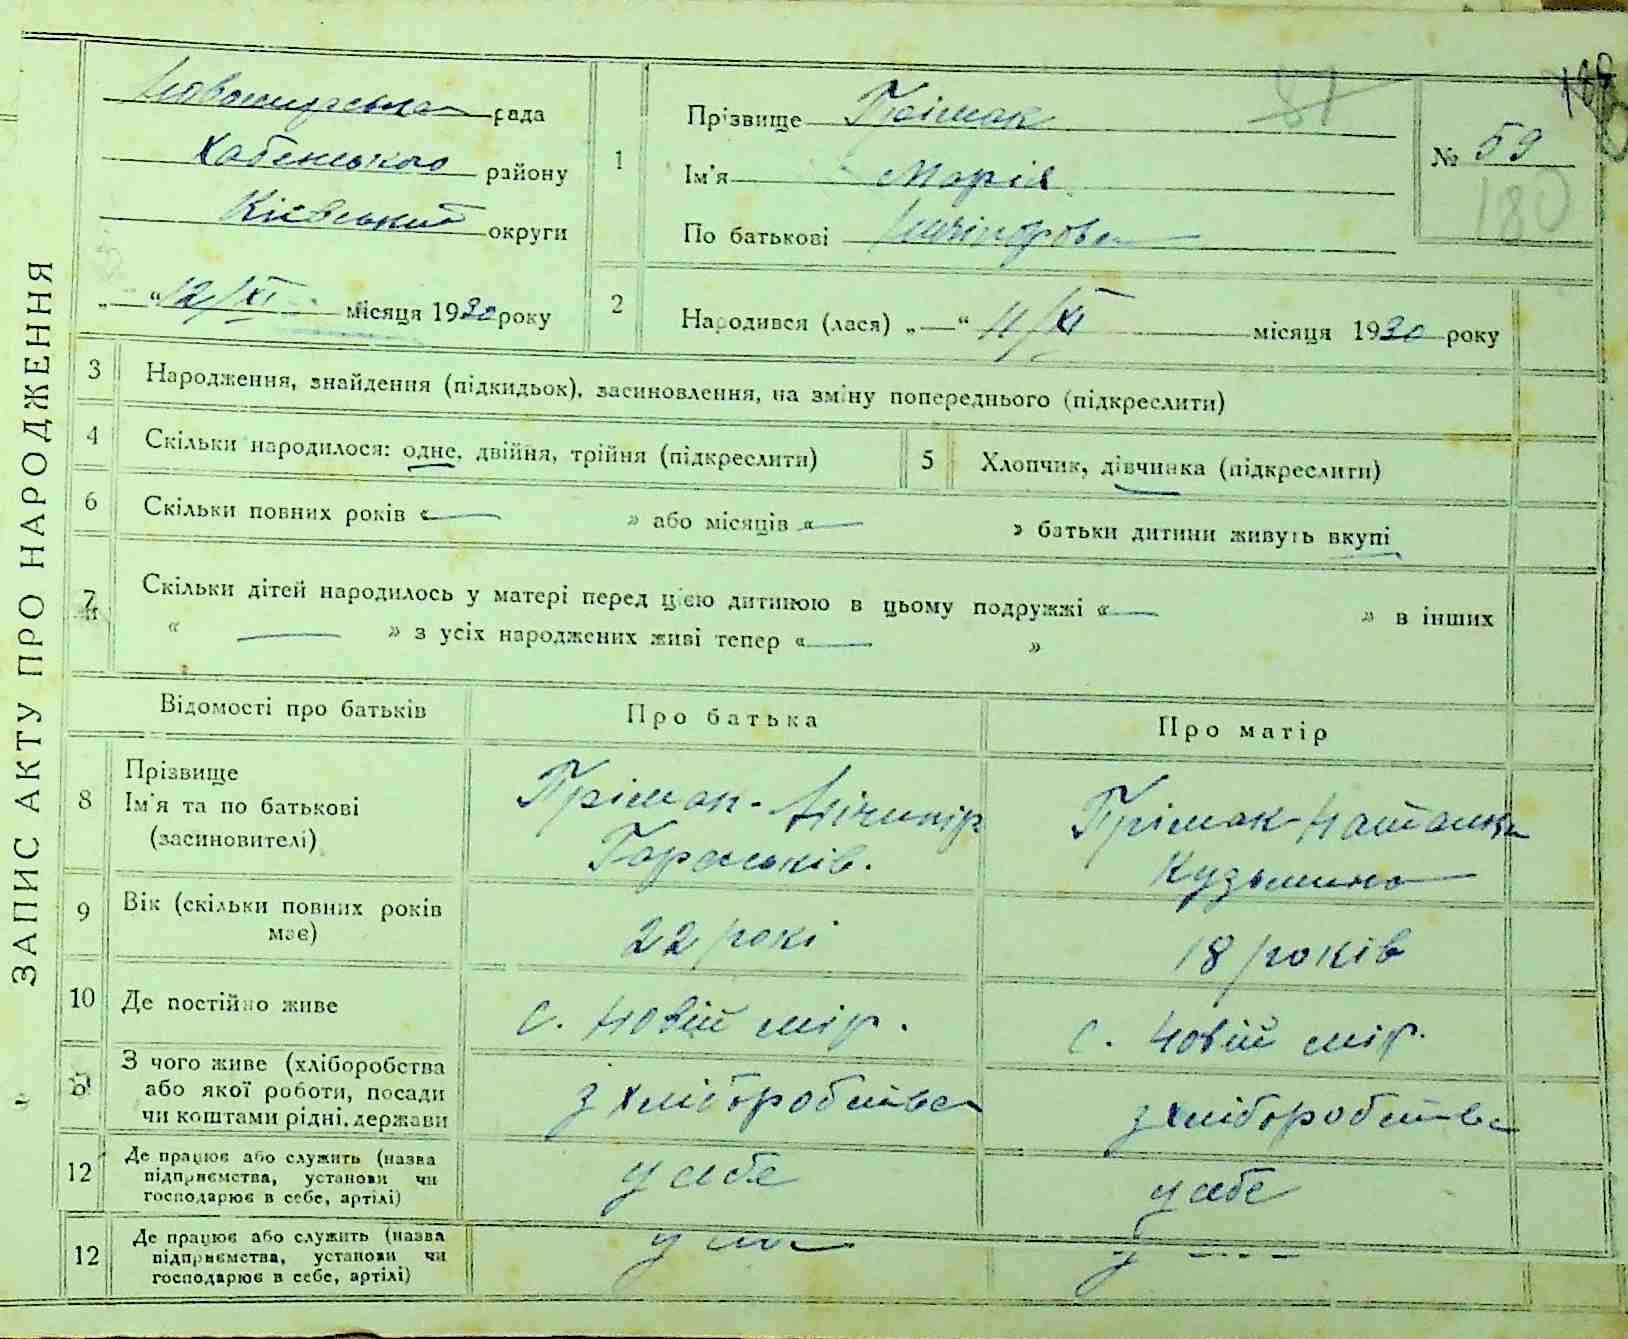 ЗАПИС АКТУ ПРО НАРОДЖЕННЯ
Новомирська рада
Хабенського району
Київський округи
„—“ 12/XI місяця 1930 року
1
Прізвище Прімак
Ім'я Марія
По батькові
№ 59
180
81
2
Народився (лася) „—“ 11/XI місяця 1930 року
3 Народження, знайдення (підкидьок), засиновлення, на зміну попереднього (підкреслити)
4 Скільки народилося: одне, двійня, трійня (підкреслити)
5 Хлопчик, дівчинка (підкреслити)
6 Скільки повних років «— » або місяців «— » батьки дитини живуть вкупі
7 Скільки дітей народилось у матері перед цією дитиною в цьому подружжі «— » в інших
« — » з усіх народжених живі тепер «— »
Відомості про батьків
Про батька
Про матір
8 Прізвище
Ім'я та по батькові
(засиновителі)
Прімак Нічипір
Гараськів.
Прімак Наталка
Кузьмина
9 Вік (скільки повних років
має)
22 рокі
18 років
10 Де постійно живе
с. Новий мір.
с. Новий мір.
З чого живе (хліборобства
або якої роботи, посади
чи коштами рідні, держави
з хліборобства
з хліборобства
12 Де працює або служить (назва
підприємства, установи чи
господарює в себе, артілі)
у себе
у себе
12 Де працює або служить (назва
підприємства, установи чи
господарює в себе, артілі)